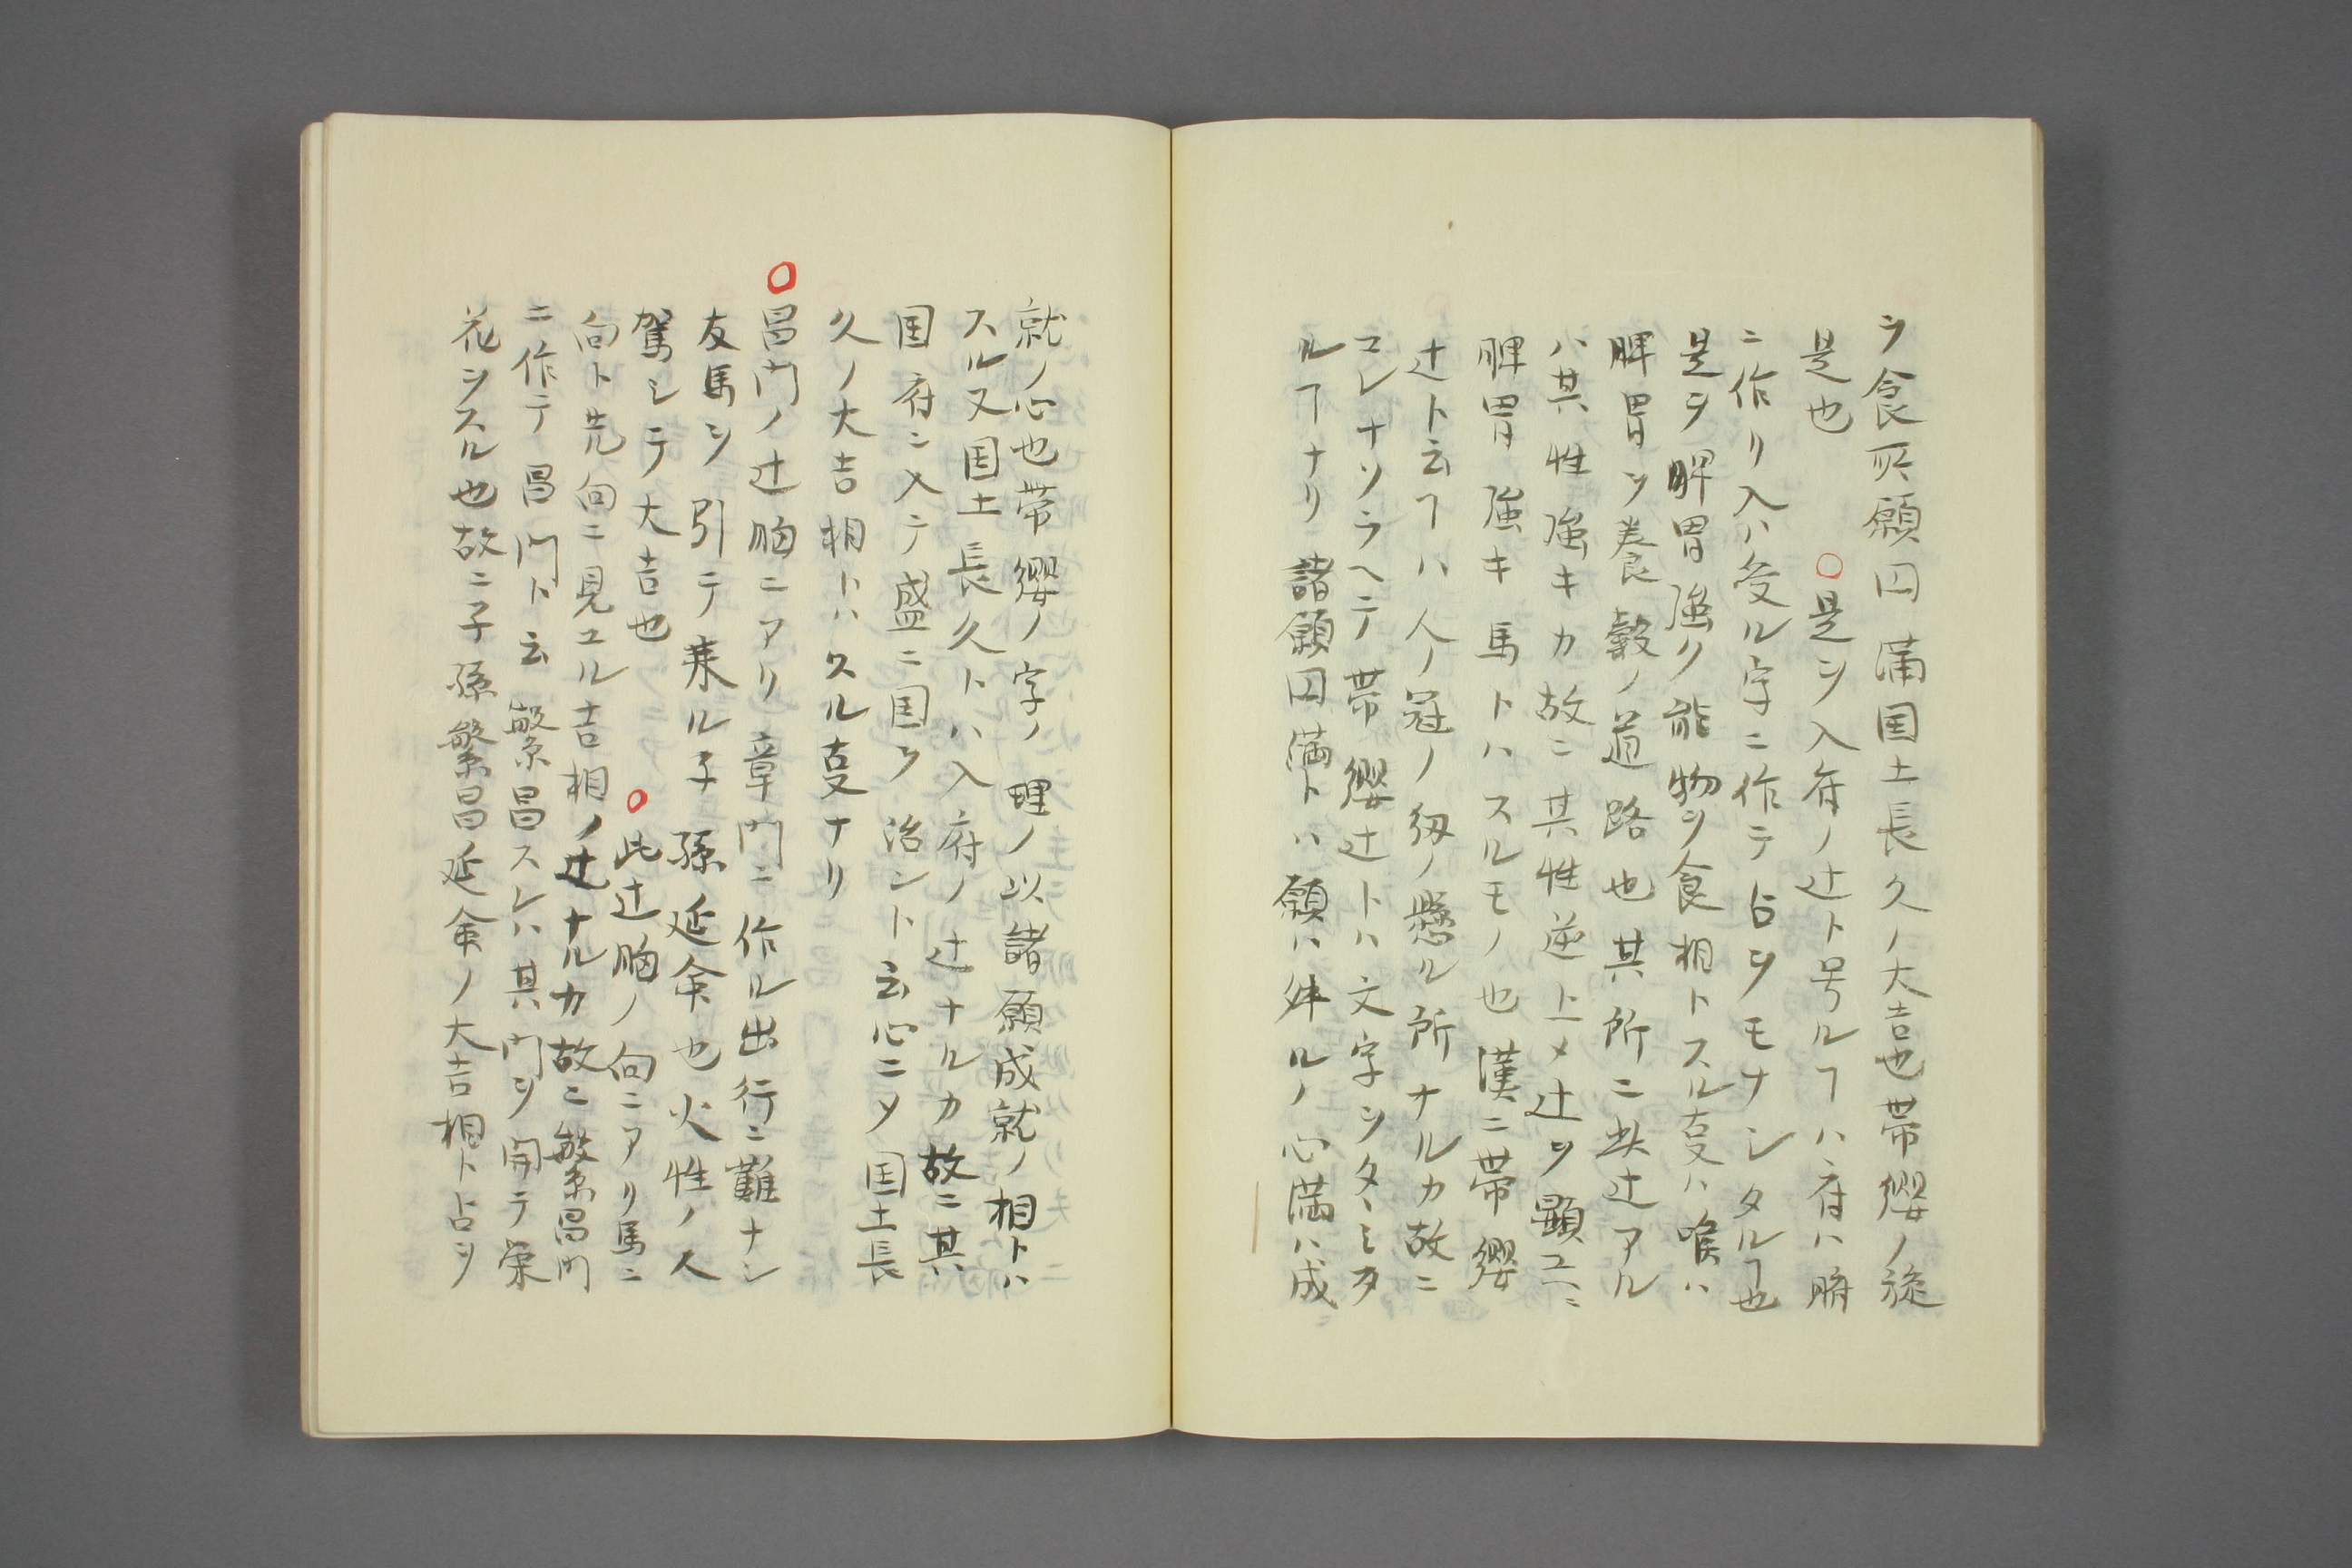 ヲ食所願円満国土長久ノ大吉也帯纓ノ旋
是也　○是ヲ入府ノ辻ト号ルヿハ府ハ腑
ニ作リ入ハ受ル字ニ作テ占ヲモナシタルヿ也
是ヲ脾胃強ク能物ヲ食相トスル夏ハ喉ハ
脾胃ヲ養穀ノ道路也其所ニ此辻アル
ハ其性強キカ故ニ其性逆上メ辻ヲ顕ユヘニ
脾胃強キ馬トハスルモノ也漢ニ帯纓
辻ト云ヿハ人ノ冠ノ紐ノ懸ル所ナルカ故ニ
コレナソラヘテ帯纓辻トハ文字ヲタヽミタ
ルヿナリ諸願円満トハ願ハ絆ルノ心満ハ成
就ノ心也帯纓ノ字ノ理ノ以諸願成就ノ相トハ
スル又国土長久トハ入府ノ辻ナルカ故ニ其
国府ニ入テ盛ニ国ヲ治ント云心ニメ国土長
久ノ大吉相トハスル夏ナリ
○昌門ノ辻胸ニアリ章門ニ作ル出行ニ難ナシ
友馬ヲ引テ来ル子孫延命也火性ノ人
駕シテ大吉也　○此辻胸ノ向ニアリ馬ニ
向ト先向ニ見ユル吉相ノ辻ナルカ故ニ繁昌門
ニ作テ昌門ト云繁昌スレハ其門ヲ開テ栄
花ヲスル也故ニ子孫繁昌延命ノ大吉相ト占ヲ